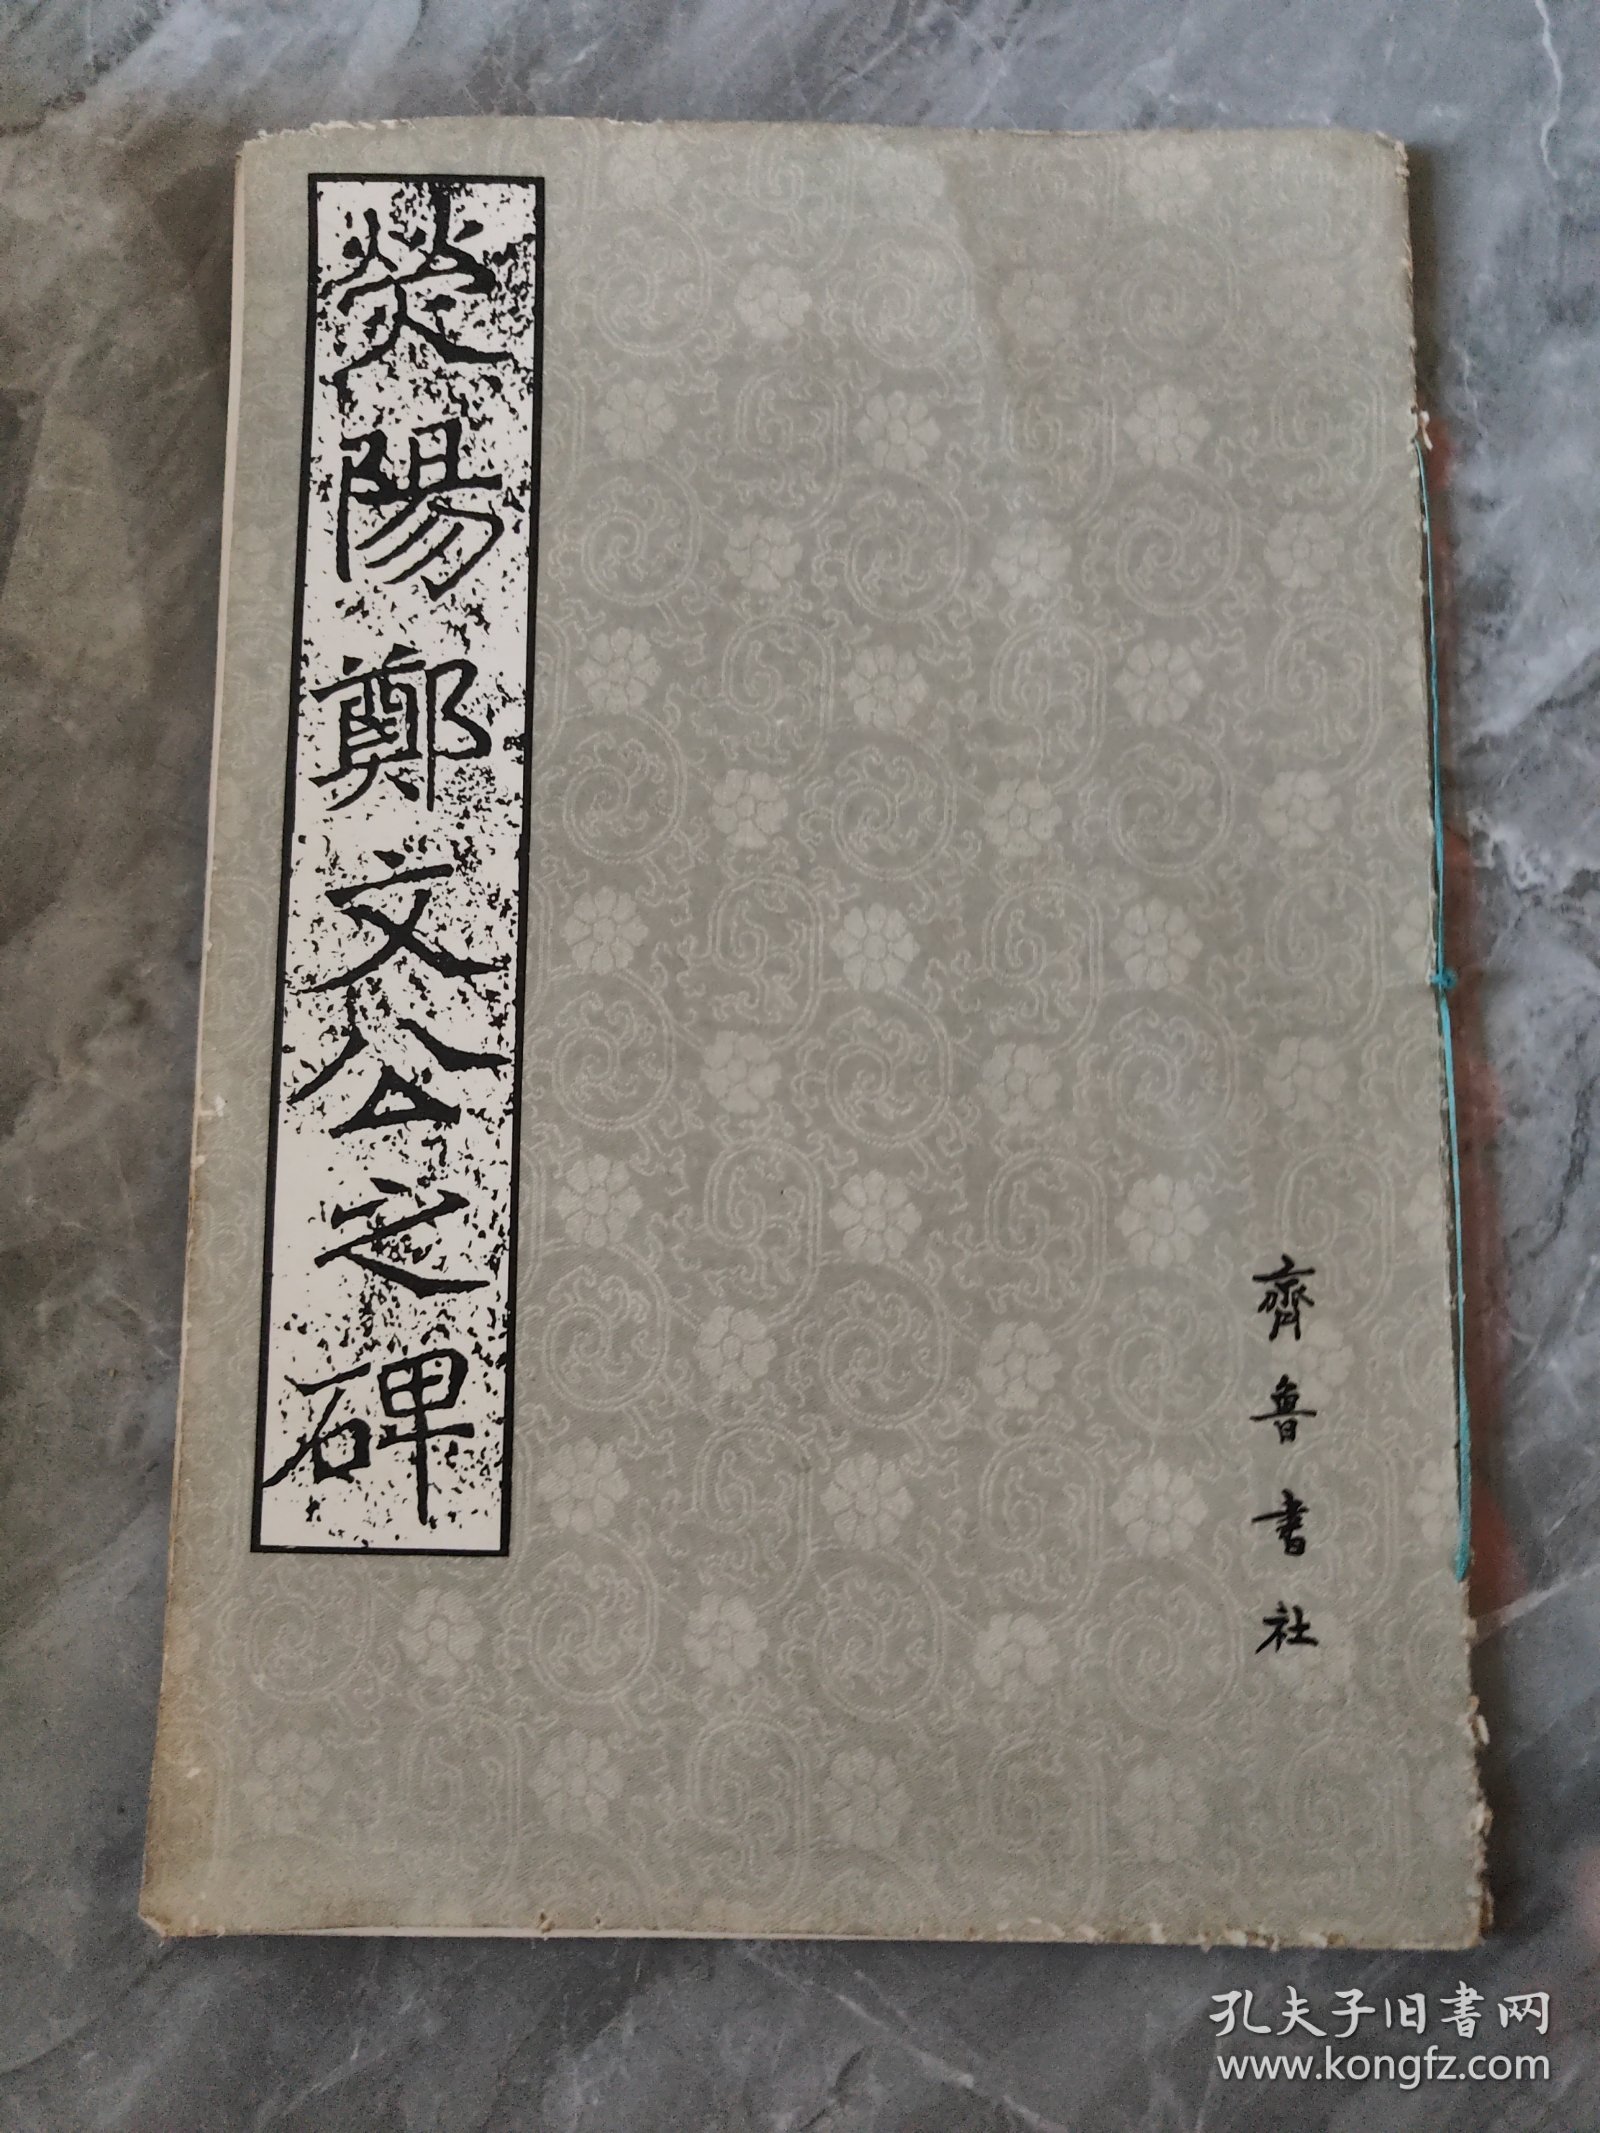 荧陽鄭文公之碑
齊魯書社
孔夫子旧书网
www.kongfz.com